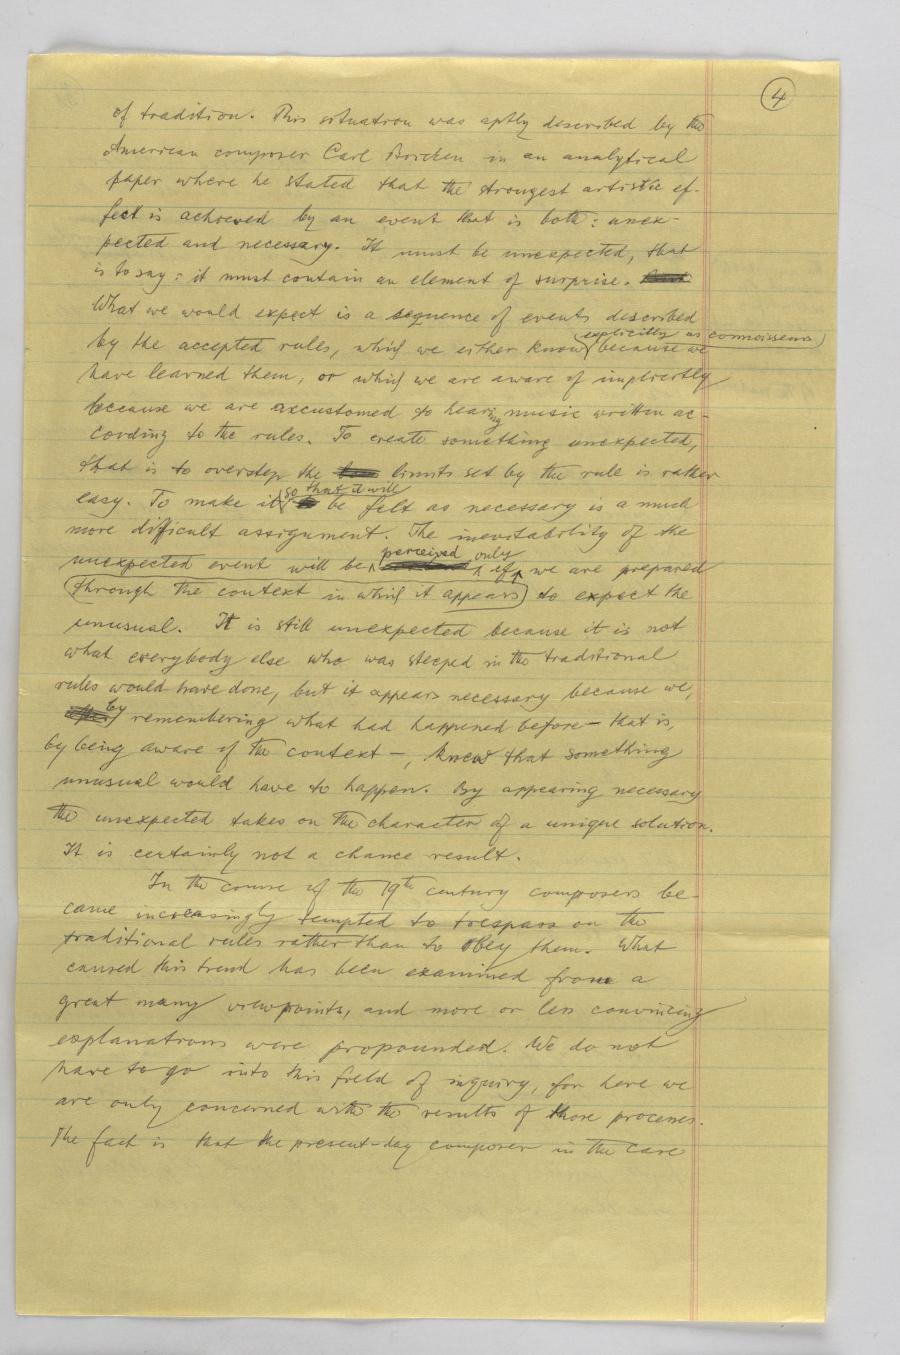 4
of tradition. This situation was aptly described by the
American composer Carl in an analytical
paper where he stated that the strongest artistic ef-
fect is achieved by an event that is both: unex-
pected and necessary. It must be unexpected, that
is to say: it must contain an element of surprise.
What we would expect is a sequence of events described
explicitly as connoisseurs
by the accepted rules, which we either know because we
have learned them, or which we are aware of implicitly
because we are accustomed to hearing music written ac-
cording to the rules. To create something unexpected,
that is to overstep the limits set by the rule is rather
so that it will
easy. To make it be felt as necessary is a much
more difficult assignment. The inevitability of the
perceived only
unexpected event will be if we are prepared
through the context in which it appears to expect the
unusual. It is still unexpected because it is not
what everybody else who was steeped in the traditional
rules would have done, but it appears necessary because we,
by remembering what had happened before – that is,
by being aware of the context –, knew that something
unusual would have to happen. By appearing necessary
the unexpected takes on the character of a unique solution.
It is certainly not a chance result.
In the course of the 19th century composers be-
came increasingly tempted to trespass on the
traditional rules rather than to obey them. What
caused this trend has been examined from a
great many viewpoints, and more or less convincing
explanations were propounded. We do not
have to go into this field of inquiry, for here we
are only concerned with the results of those processes.
The fact is that the present-day composer in the case